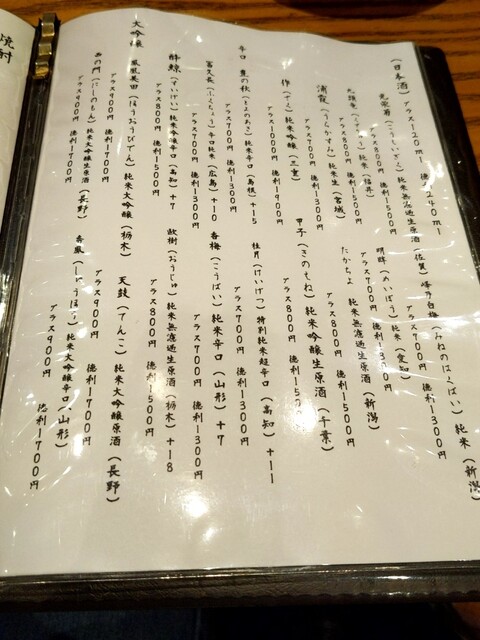 焼酎
(日本酒) グラス120ml 徳利240ml
光栄菊(こうえいぎく)純米無濾過生原酒(佐賀)
グラス800円 徳利1500円
峰乃白梅(みねのはくばい)純米(新潟)
グラス700円 徳利1300円
九頭龍(くずりゅう)純米(福井)
グラス800円 徳利1500円
明眸(めいぼう)純米(愛知)
グラス700円 徳利1300円
浦霞(うらかすみ)純米生(宮城)
グラス700円 徳利1300円
たかちよ 純米無濾過生原酒(新潟)
グラス800円 徳利1500円
作(ざく)純米吟醸(三重)
グラス1000円 徳利1900円
甲子(きのえね)純米吟醸生原酒(千葉)
グラス800円 徳利1500円
辛口 豊の秋(とよのあき)純米辛口(島根)+15
グラス700円 徳利1300円
桂月(けいげつ)特別純米超辛口(高知)+11
グラス700円 徳利1300円
富久長(ふくちょう)辛口純米(広島)+10
グラス700円 徳利1300円
香梅(こうばい)純米辛口(山形)+7
グラス700円 徳利1300円
酔鯨(すいげい)純米吟醸辛口(高知)+7
グラス800円 徳利1500円
旺樹(おうじゅ)純米無濾過生原酒(栃木)+18
グラス800円 徳利1500円
大吟醸 鳳凰美田(ほうおうびでん)純米大吟醸(栃木)
グラス900円 徳利1700円
天鼓(てんこ)純米大吟醸原酒(長野)
グラス900円 徳利1700円
西の門(にしのもん)純米大吟醸生原酒(長野)
グラス900円 徳利1700円
純米大吟醸辛口(山形)
グラス900円 徳利1700円